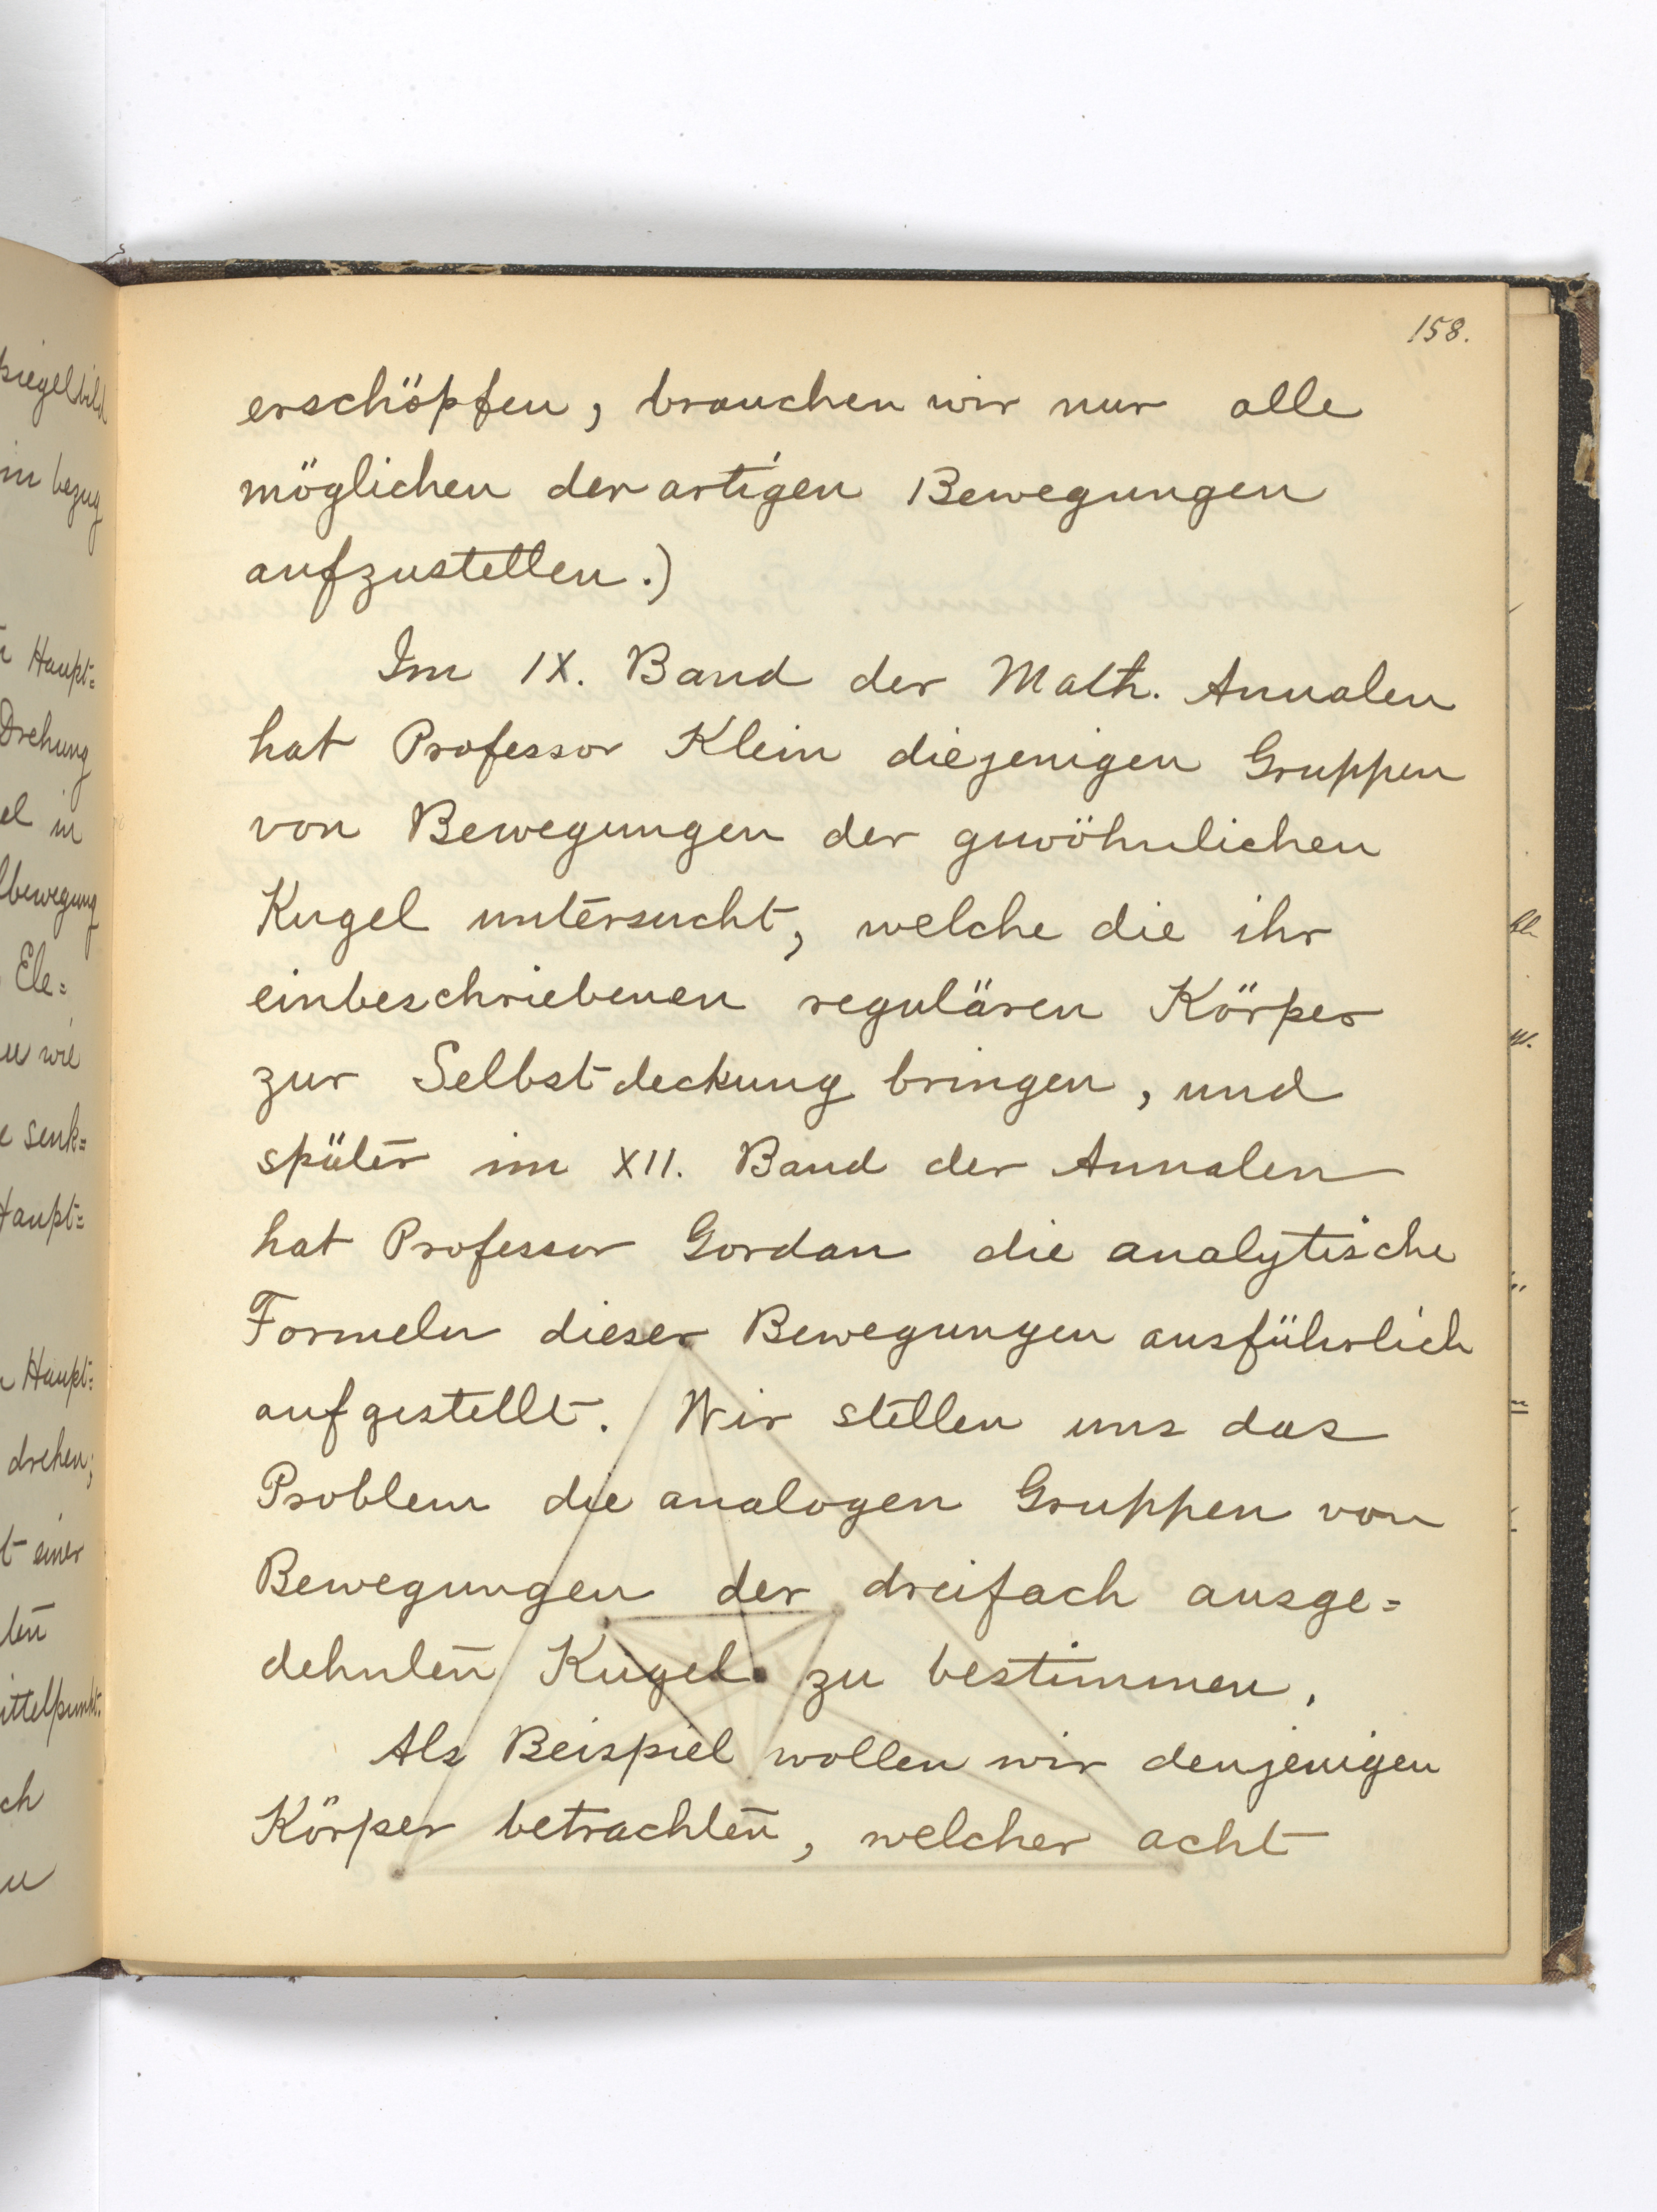 158.
erschöpfen, brauchen wir nur alle
möglichen derartigen Bewegungen
aufzustellen.)
Im IX. Band der Math. Annalen
hat Professor Klein diejenigen Gruppen
von Bewegungen der gewöhnlichen
Kugel untersucht, welche die ihr
einbeschriebenen regulären Körper
zur Selbstdeckung bringen, und
später im XII. Band der Annalen
hat Professor Gordan die analytische
Formeln dieser Bewegungen ausführlich
aufgestellt. Wir stellen uns das
Problem die analogen Gruppen von
Bewegungen der dreifach ausge=
dehnten Kugel zu bestimmen.
Als Beispiel wollen wir denjenigen
Körper betrachten, welcher acht
spiegelbild
in bezug
Haupt=
Drehung
el in
bewegung
Ele=
wie
senk=
Haupt=
Haupt=
drehen;
t einer
ten
ittelpunkt.
ch